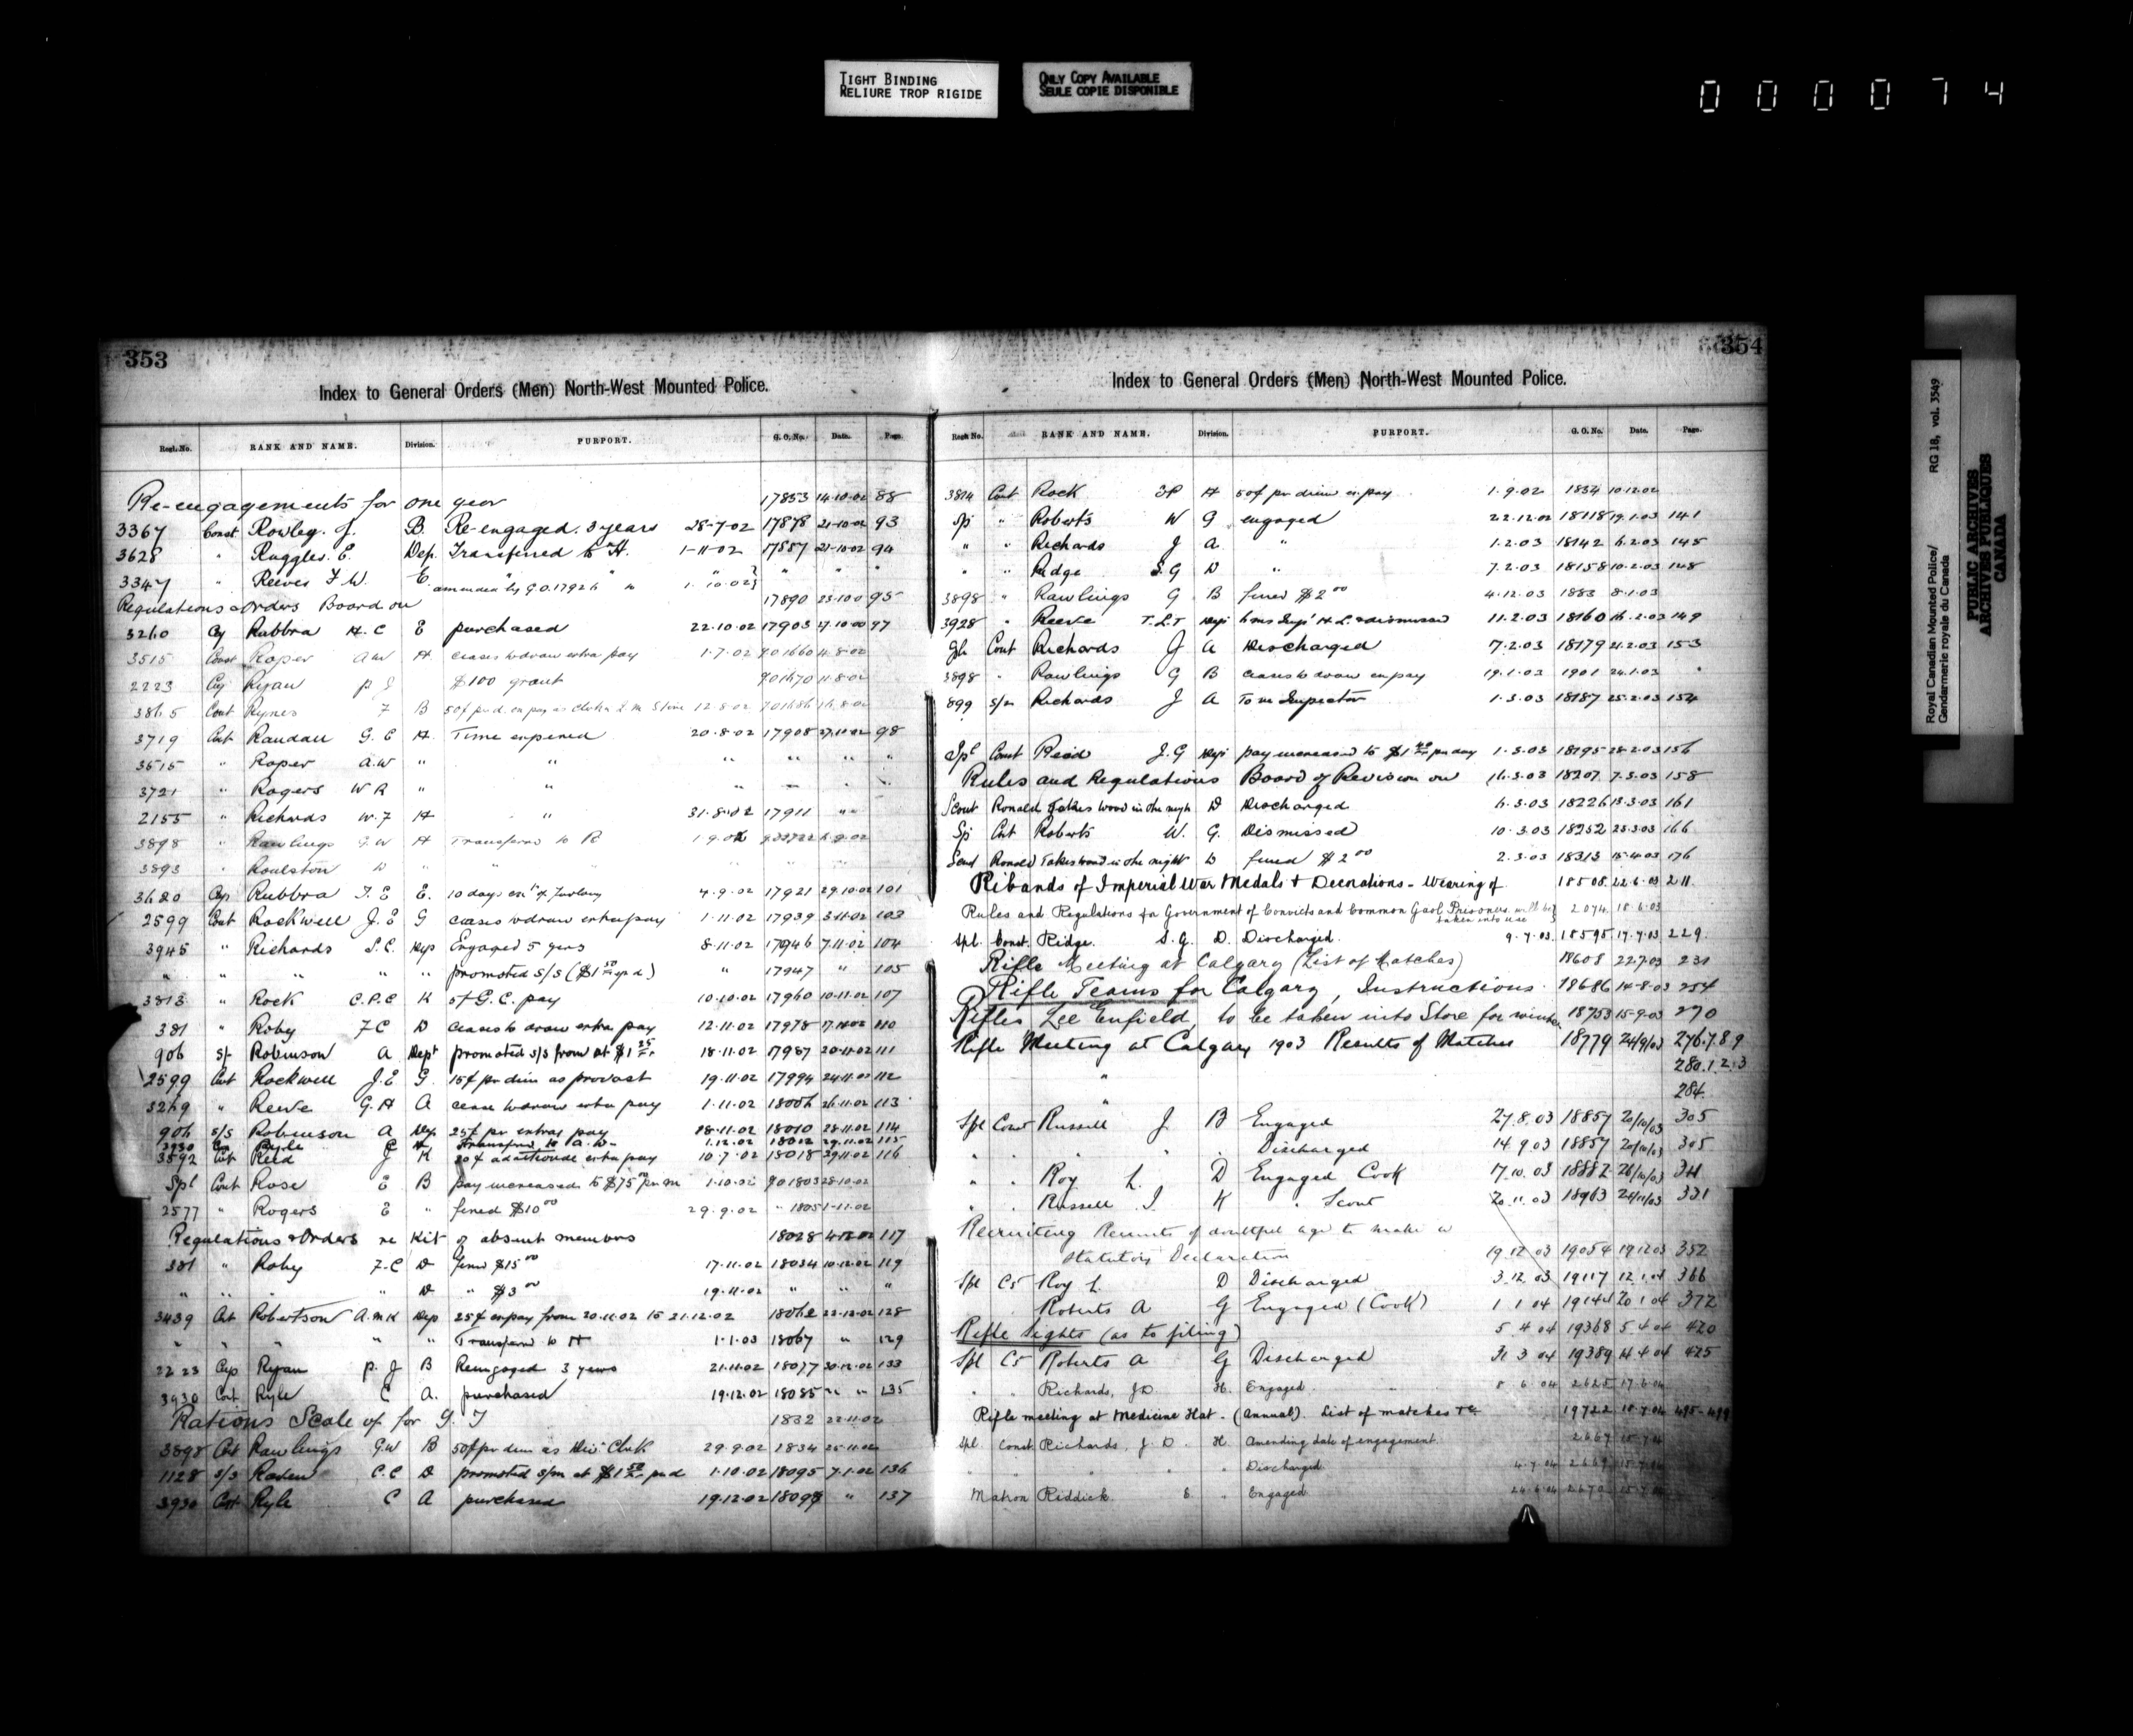 TIGHT BINDING
RELIURE TROP RIGIDE
ONLY COPY AVAILABLE
SEULE COPIE DISPONIBLE
0 0 0 0 7 4
353
Index to General Orders (Men) North-West Mounted Police.
Regt. No. RANK AND NAME. Division. PURPORT. G. O. No. Date. Page.
Re-engagements for one year 17853 14.10.02 88
3367 Const Rowley. J. B. Re-engaged. 3 years 28-7-02 17878 21-10-02 93
3628 " Ruggles. E. Dep. Transferred to H. 1-11-02 17887 21-10-02 94
3347 " Reeves F. W. E. amended by G.O. 17926 " to 1.10.02 } " " "
Regulations & Orders Board on 17890 23.10.0 95
3260 Cp Rubbra H. C E purchased 22.10.02 17903 27.10.00 97
3515 Const Roper A W H ceases to draw extra pay 1.7.02
2223 Cp Ryan P J $100 grant
3865 Cont Rymes F B 12.8.02
3719 Cnt Randall G. E H. Time expired 20.8.02 17908 27.10.02 98
3515 " Roper A.W " " " " " "
3721 " Rogers W R " "
2155 " Richards W. F H " 31.8.02 17911 " "
3898 " Rawlings G.W H Transferred to B
3893 " Roulston W " "
3680 Cp Rubbra F. E E. 10 days furlong 4.9.02 17921 29.10.02 101
2599 Cont Rockwell J. E G ceases to draw extra pay 1.11.02 17939 3.11.02 103
3945 " Richards S. C. Dep Engaged 5 years 8.11.02 17946 7.11.02 104
" " " " " promoted S/S ($1 50 per d) " 17947 " 105
3813 " Rock C.P.C K 5¢ G. C. pay 10.10.02 17960 10.11.02 107
381 " Roby F C D ceases to draw extra pay 12.11.02 17978 17.11.02 110
906 S/- Robinson A Dept promoted S/S from at $1 25 18.11.02 17987 20.11.02 111
2599 Cnt Rockwell J. E G. 15¢ per diem as provost 19.11.02 17994 24.11.02 112
3269 " Reeve G. H A cease to draw extra pay 1.11.02 18006 26.11.02 113
906 S/S Robinson A Dep. 25¢ pr extra pay 18.11.02 18010 28.11.02 114
3930 Ryle C 1.12.02 18012 29.11.02 115
3592 Cnt Reed J K 20¢ additional extra pay 10.7.02 18018 29.11.02 116
Spl Cont Rose E B pay increased to $75 00 per m 1.10.02
2577 " Rogers E " fined $10 00 29.9.02 " 1805 1-11.02
Regulations & Orders re Kit of absent members 18028 4.12.02 117
381 " Roby F. C D fined $15 00 17.11.02 18034 10.12.02 119
" " " D " $3 00 19.11.02 " " "
3439 Cnt Robertson A. McK Dep 25¢ ex pay from 20.11.02 to 21.12.02 18062 22.12.02 128
" " " " " Transferred to H 1.1.03 18067 " 129
2223 Cp Ryan P. J B Reengaged 3 years 21.11.02 18077 30.12.02 133
3930 Cont Ryle C A. purchased 19.12.02 18085 " " 135
Rations Scale of for Y. T 1832 22.11.02
3898 Cnt Rawlings G.W B 50¢ pr diem as Div Clerk 29.9.02 1834 25.11.02
1128 S/S Raven C. C D promoted S/M at $1 50 pr d 1.10.02 18095 7.1.02 136
3930 Cnt Ryle C A purchased 19.12.02 18098 " 137
354
Index to General Orders (Men) North-West Mounted Police.
Regt. No. RANK AND NAME. Division. PURPORT. G. O. No. Date. Page.
3814 Cont Rock H 50¢ per diem ex pay 1.9.02 1834 10.12.02
Sp " Roberts W G engaged 22.12.02 18118 19.1.03 141
" " Richards J A " 1.2.03 18142 6.2.03 145
" " Ridge S. G D " 7.2.03 18158 10.2.03 148
3898 " Rawlings G B fined $2 00 4.12.03 1883 8.1.03
3928 " Reeve T. L. T Dep 6 mos Imp. H. L. & dismissed 11.2.03 18160 16.2.03 149
Spl Cont Richards J A Discharged 7.2.03 18179 21.2.03 153
3898 " Rawlings G B ceases to draw ex pay 19.1.03 1901 24.1.03 "
899 S/m Richards J A To be Inspector 1.3.03 18187 25.2.03 154
Spl Const Reid J. G Dep pay increased to $1 40 per day 1.3.03 18195 28.2.03 156
Rules and Regulations Board of Revision on 16.3.03 18207 7.3.03 158
Scout Ronald Takes wood in the night D Discharged 6.3.03 18226 13.3.03 161
Sp Cnt Roberts W. G. Dismissed 10.3.03 18252 25.3.03 166
Scout Ronald Takes wood in the night D fined $2 00 2.3.03 18313 15.4.03 176
Ribands of Imperial War Medals & Decorations - Wearing of 18508. 22.6.03 211.
Rules and Regulations for Government of Convicts and Common Gaol Prisoners. will be } 2074. 18.6.03
taken into use
Spl. Const. Ridge. S. G. D. Discharged. 9.7.03. 18595 17.7.03 229.
Rifle Meeting at Calgary (List of Matches) 18608 22.7.03 231
Rifle Teams for Calgary, Instructions. 18686 14.8.03 254
Rifles Lee Enfield, to be taken into Store for winter 18753 15-9-03 270
Rifle Meeting at Calgary 1903 Results of Matches 18779 24/9/03 276.7.8.9
" 280.1.2.3
" 284.
Spl Const Russell J. B Engaged 27.8.03 18857 20/10/03 305
" " " " Discharged 14.9.03 18857 20/10/03 305
" " Roy L. D Engaged Cook 17.10.03 18882 26/10/03 311
" " Russell J. K " Scout 20.11.03 18963 24/11/03 331
Recruiting Recruits of doubtful age to make a
Statutory Declaration 19.12.03 19054 19.12.03 352
Spl Cs Roy L. D Discharged 3.12.03 19117 12.1.04 366
Roberts A G Engaged (Cook) 1 1 04 19144 20 1 04 372
Rifle Sights (as to filing) 5 4 04 19368 5 4 04 420
Spl Cs Roberts A G Discharged 31 3 04 19389 14 4 04 425
" " Richards, J D H. Engaged. 8 6 04 2625 17.6.04
Rifle meeting at Medicine Hat - (Annual). List of matches &c. 19722 18.7.04 495-499
Spl Const Richards, J. D. H Amending date of engagement. 2667 15.7.04
" " " " " Discharged. 4.7.04 2669 15.7.04
Matron Riddick. E " Engaged. 24.6.04 2670 15.7.04
Royal Canadian Mounted Police/ RG 18, vol. 3549
Gendarmerie royale du Canada
PUBLIC ARCHIVES
ARCHIVES PUBLIQUES
CANADA